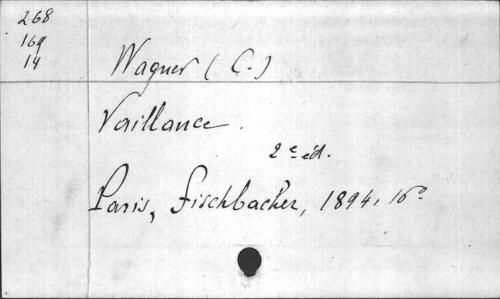 268
169
14
Wagner (C.)
Vaillance.
2e éd.
Paris, Fischbacher, 1894, 16°.